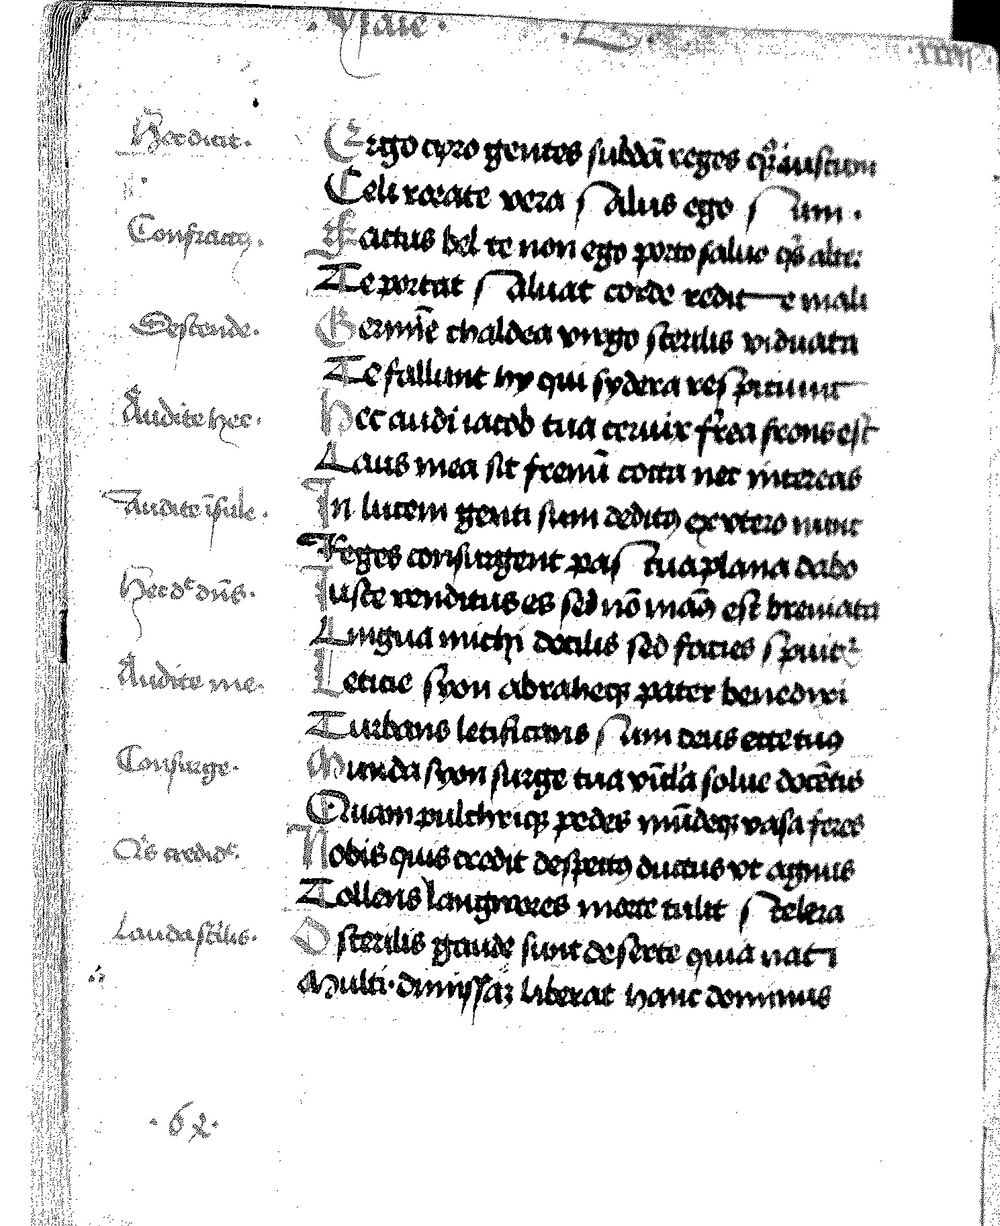 · Ysaie ·
Hec dicit ·
Ergo cyro gentes subdā reges
Celi rorate vera Saluus ego Sum ·
Confractꝰ ·
Factus bel te non ego porto saluo
Te portat Saluat corde redit e mali
Descende ·
Germīe chaldea virgo sterilis viduata
Te fallunt hy qui sydera respiciunt
Audite hec ·
Hec audi iacob tua ceruix frea frons est
Laus mea sit frenū cocta nec intereas
Audite īsule ·
In lucem genti sum deditꝰ ex vtero nunc
Reges consurgent pas tua plana dabo
Hec dc dn̄s ·
Iuste venditus es sed nō manꝰ est breuiata
Lingua michi docilis sed facies
Audite me ·
Leticie syon abraheqꝫ pater benedixi
Turbans letificans Sum deus ecce tuꝰ
Consurge ·
Munda syon surge tua vīcla solue docētis
Quam pulchriqꝫ pedes mūdeqꝫ vasa feres
Qs credidt ·
Nobis quis credit despectꝰ ductus vt agnus
Tollens langwores morte tulit Scelera
Lauda stilis ·
O sterilis gaude sunt deserte quia nati
Multi · dimissaꝫ liberat hanc dominus
· 62 ·